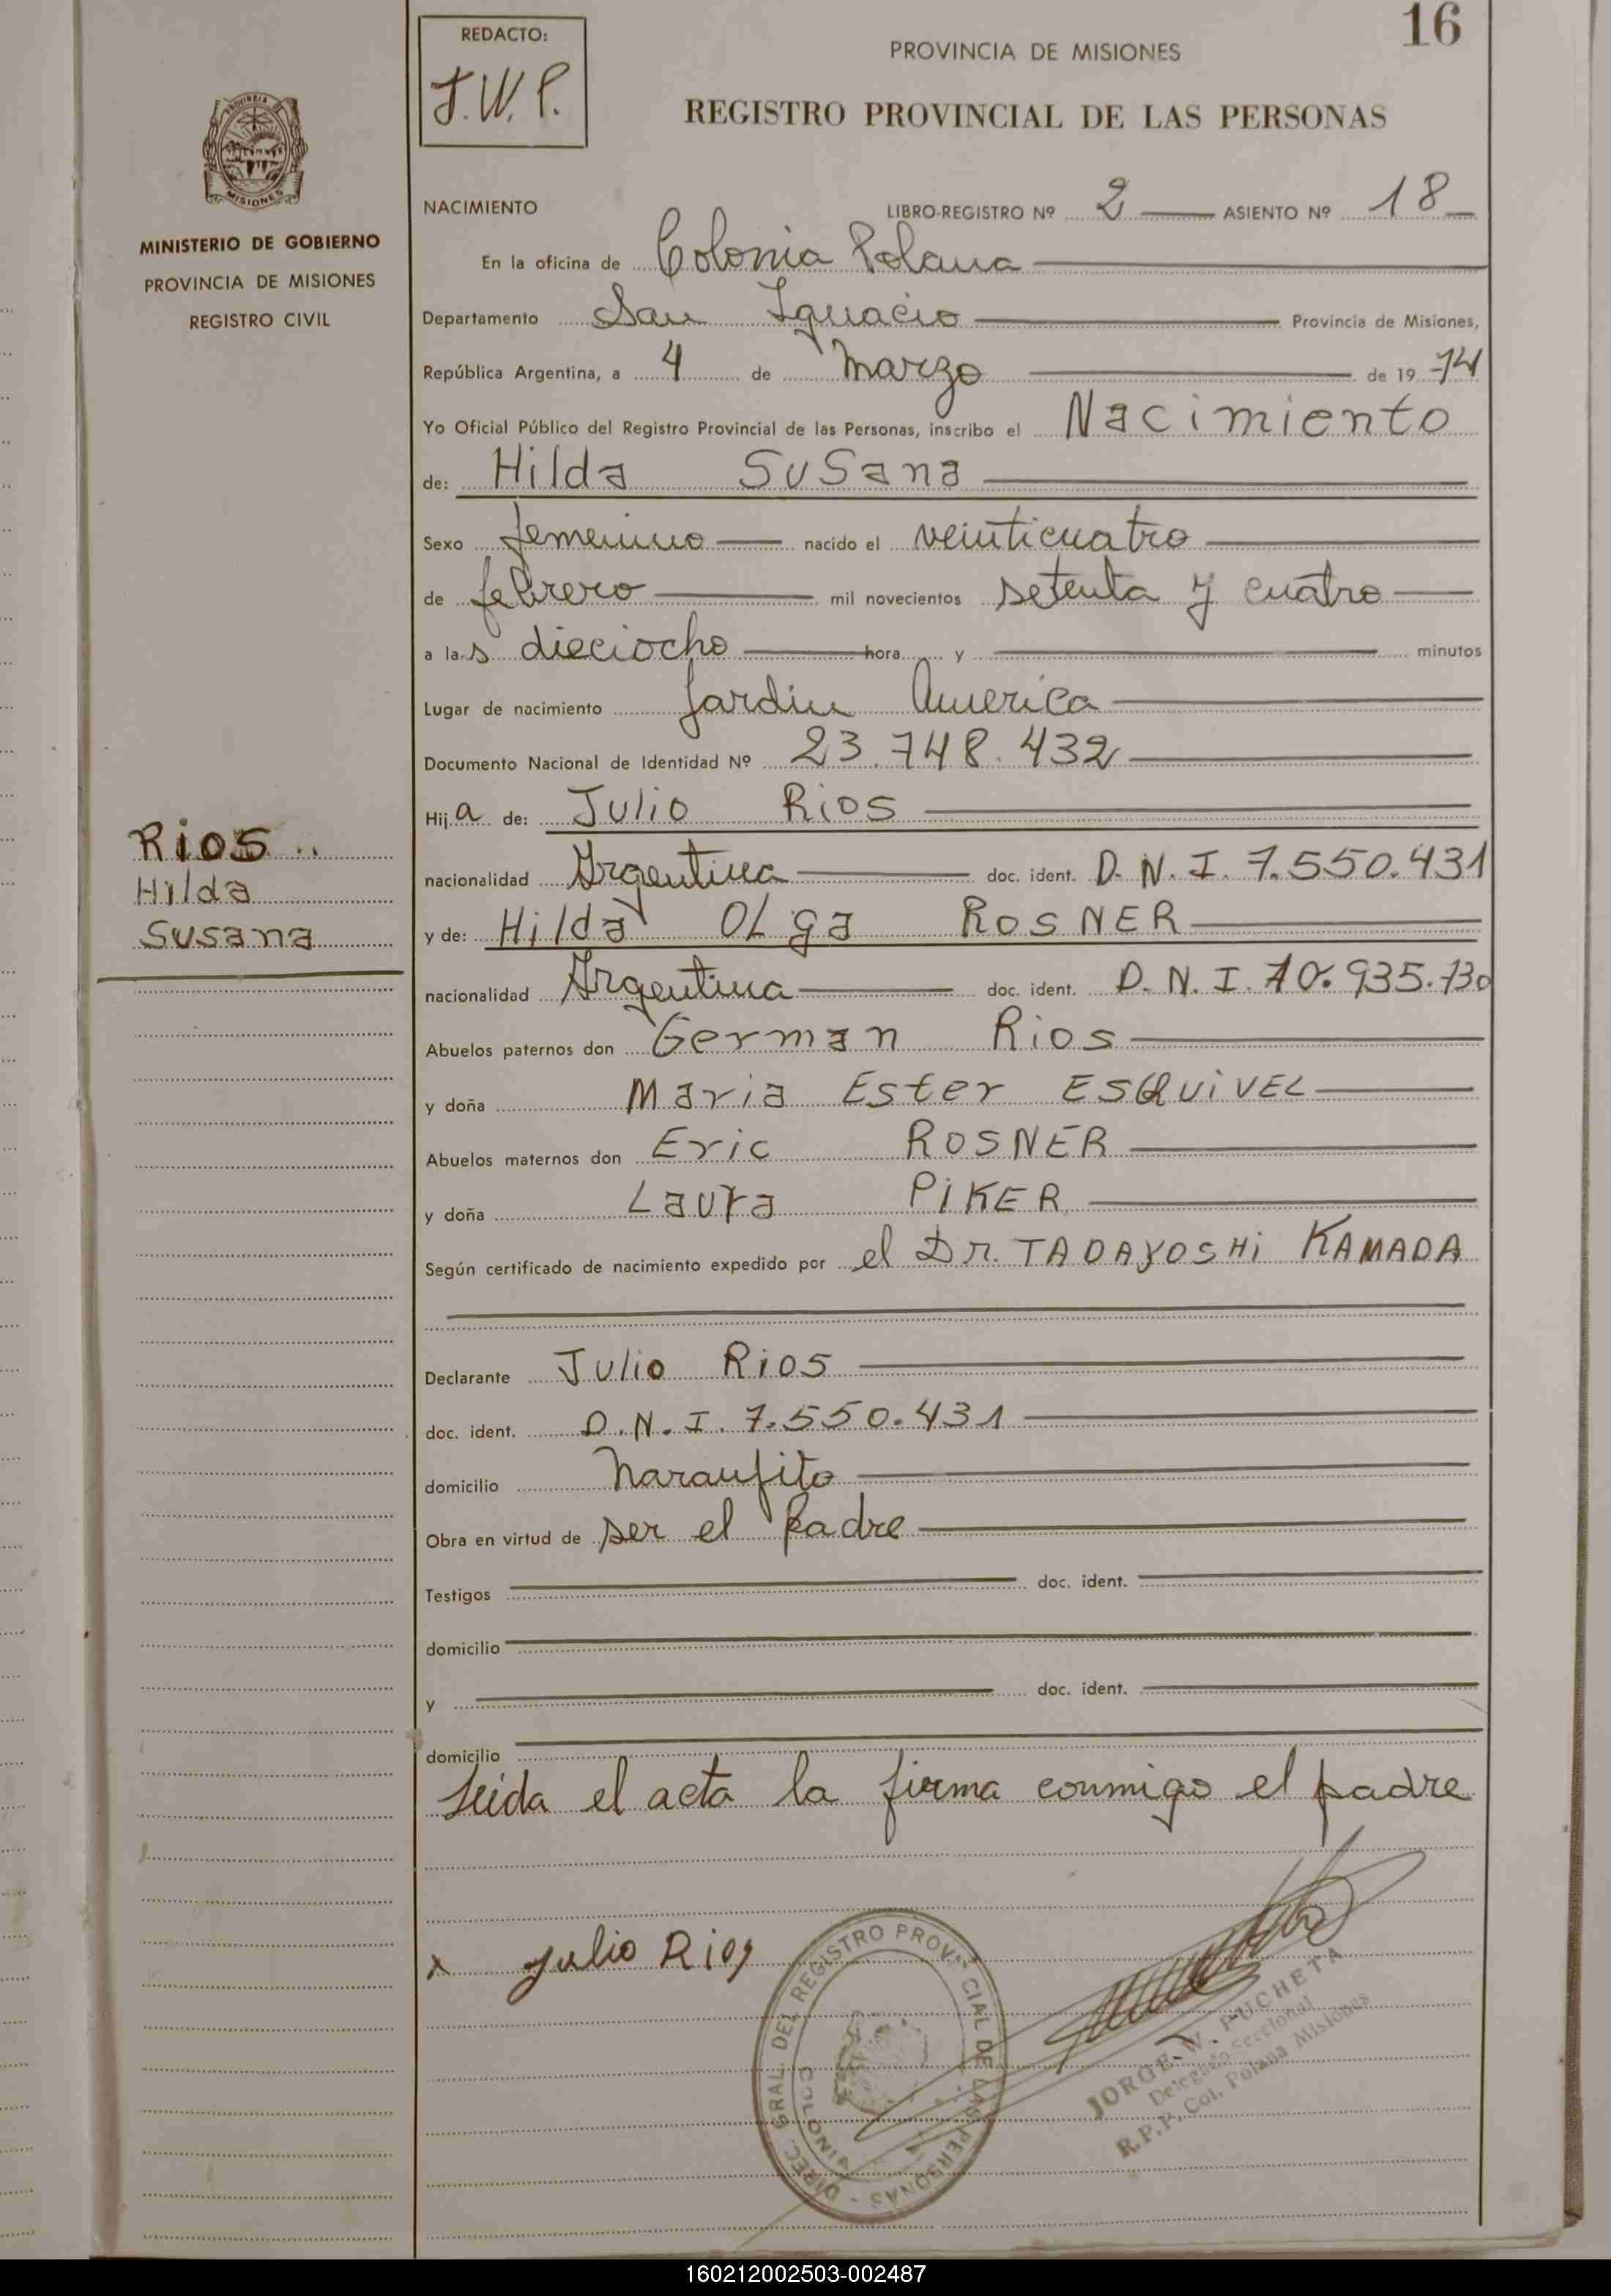 16
REDACTO:
J.W.P.
PROVINCIA DE MISIONES
REGISTRO PROVINCIAL DE LAS PERSONAS
PROVINCIA DE
MISIONES
MINISTERIO DE GOBIERNO
PROVINCIA DE MISIONES
REGISTRO CIVIL
NACIMIENTO LIBRO-REGISTRO Nº 2 ASIENTO Nº 18
En la oficina de Colonia Polana
Departamento San Ignacio Provincia de Misiones,
República Argentina, a 4 de Marzo de 19 74
Yo Oficial Público del Registro Provincial de las Personas, inscribo el Nacimiento
de: Hilda Susana
Sexo femenino nacido el veinticuatro
de febrero mil novecientos setenta y cuatro
a las dieciocho hora y minutos
Lugar de nacimiento Jardin America
Documento Nacional de Identidad Nº 23.748.432
Hija de: Julio Rios
nacionalidad Argentina doc. ident. D.N.I. 7.550.431
y de: Hilda OLga ROSNER
nacionalidad Argentina doc. ident. D.N.I. 10.935.730
Abuelos paternos don German Rios
y doña Maria Ester ESQUIVEL
Abuelos maternos don Eric ROSNER
y doña Laura PIKER
Según certificado de nacimiento expedido por el Dr. TADAYOSHI KAMADA
Declarante Julio Rios
doc. ident. D.N.I. 7.550.431
domicilio Naranjito
Obra en virtud de ser el Padre
Testigos doc. ident.
domicilio
y doc. ident.
domicilio
Leida el acta la firma conmigo el padre
Rios
Hilda
Susana
x Julio Rios
DIREC. GRAL. DEL REGISTRO PROVINCIAL DE LAS PERSONAS
JORGE W. PUCHETA
Delegado Seccional
R.P.P. Col. Polana Misiones
160212002503-002487